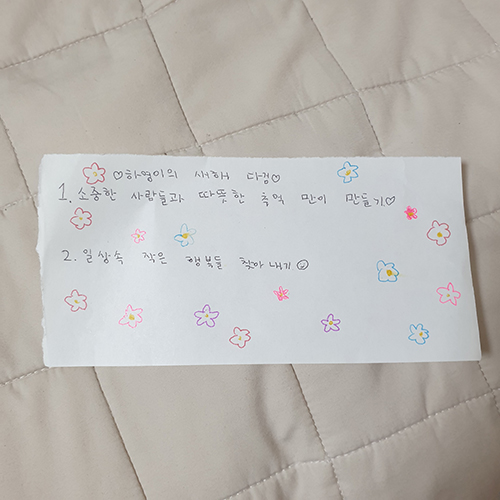 ♡하영이의 새해 다짐♡
1. 소중한 사람들과 따뜻한 추억 많이 만들기♡
2. 일상속 작은 행복들 찾아내기☺